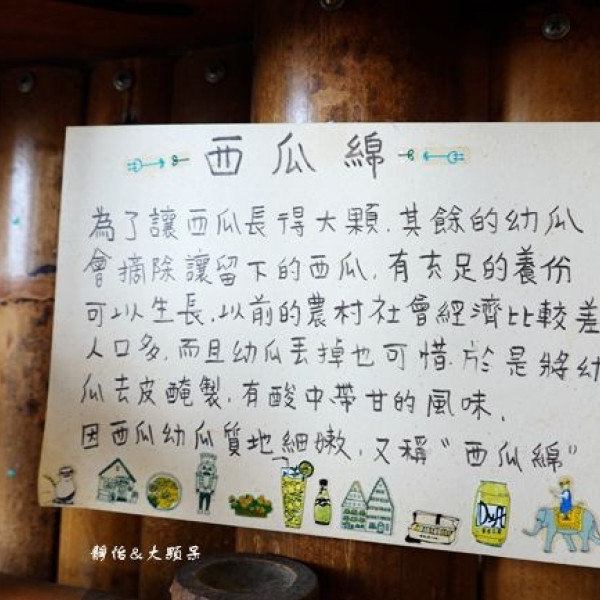 西瓜綿
為了讓西瓜長得大顆.其餘的幼瓜
會摘除讓留下的西瓜.有充足的養份
可以生長.以前的農村社會經濟比較差
人口多.而且幼瓜丟掉也可惜.於是將幼
瓜去皮醃製.有酸中帶甘的風味.
因西瓜幼瓜質地細嫩.又稱"西瓜綿"
Draft
靜怡&大顆呆